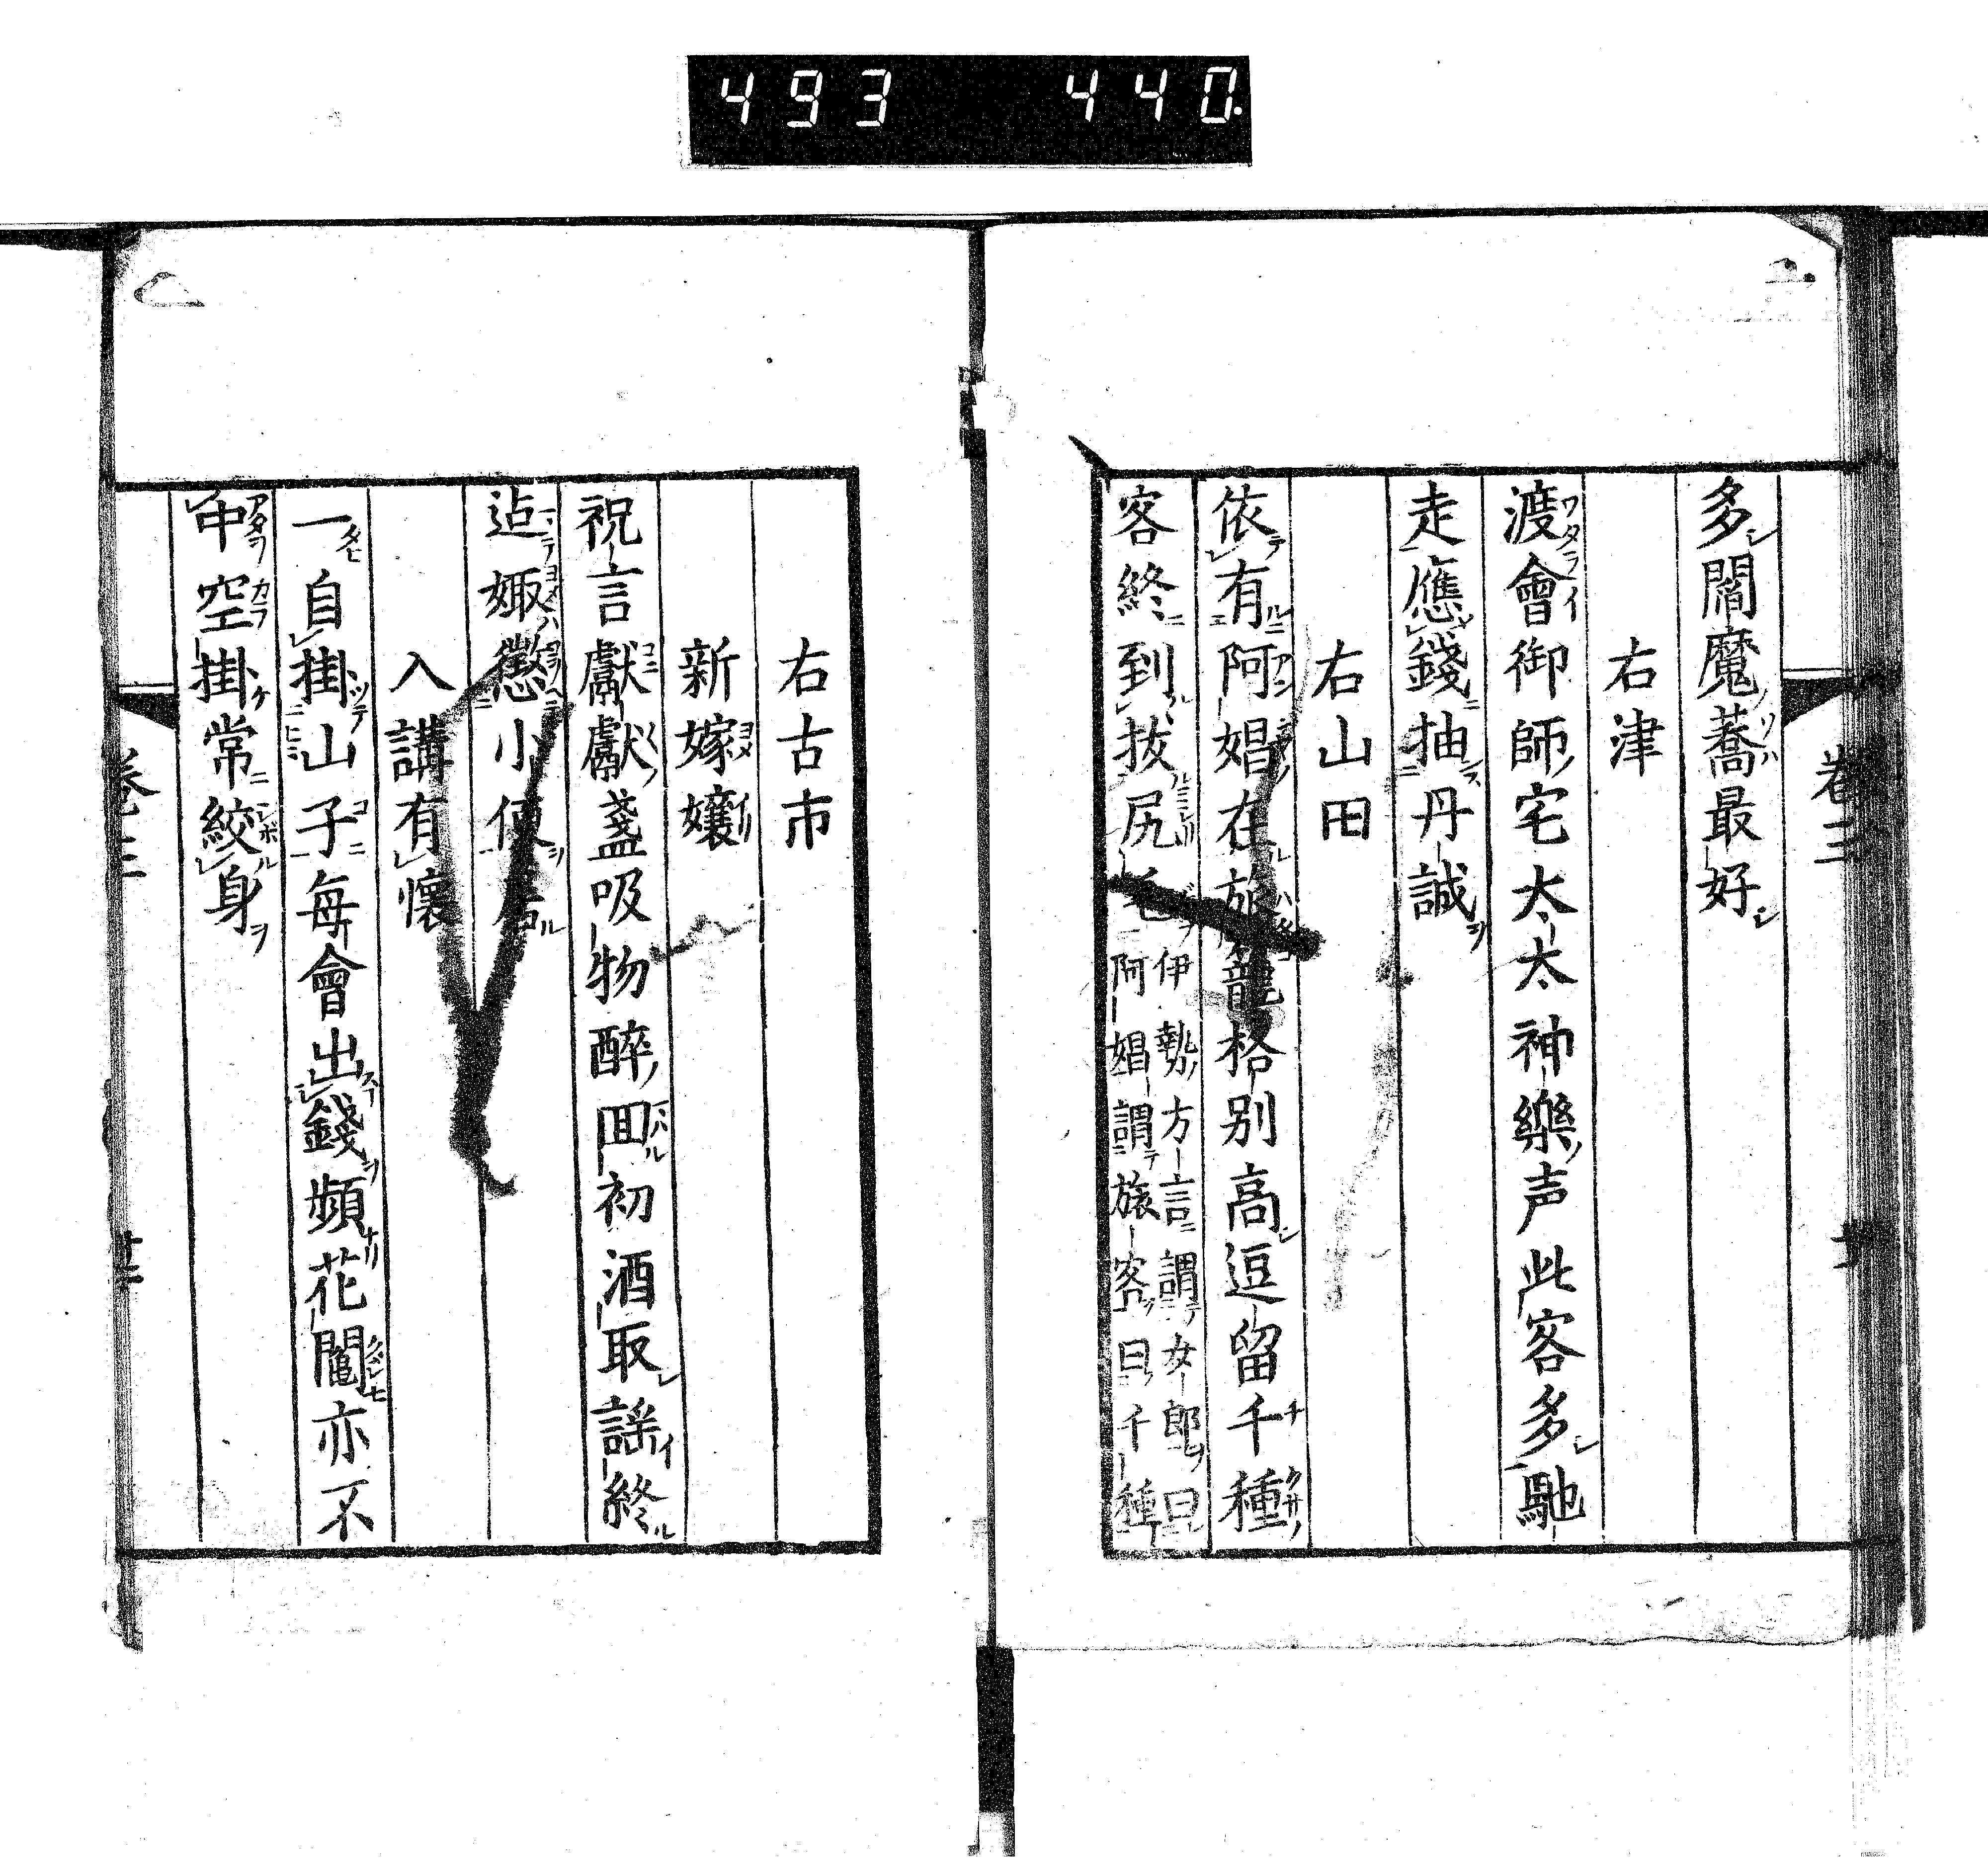 493 440.
卷三
多閻魔蕎最好
右津
渡會御師宅太太神樂声此客多馳
走應錢抽丹誠
右山田
依有阿娼在旅籠格別高逗留千種
客終到拔尻毛
伊勢方言謂女郎曰
阿娼謂旅客曰千種
右古市
新嫁孃
祝言獻獻盞吸物醉囬初酒取謠終
迠娵懲小便
入講有懐
一自掛山子毎會出錢頻花鬮亦不
中空掛常絞身
卷三